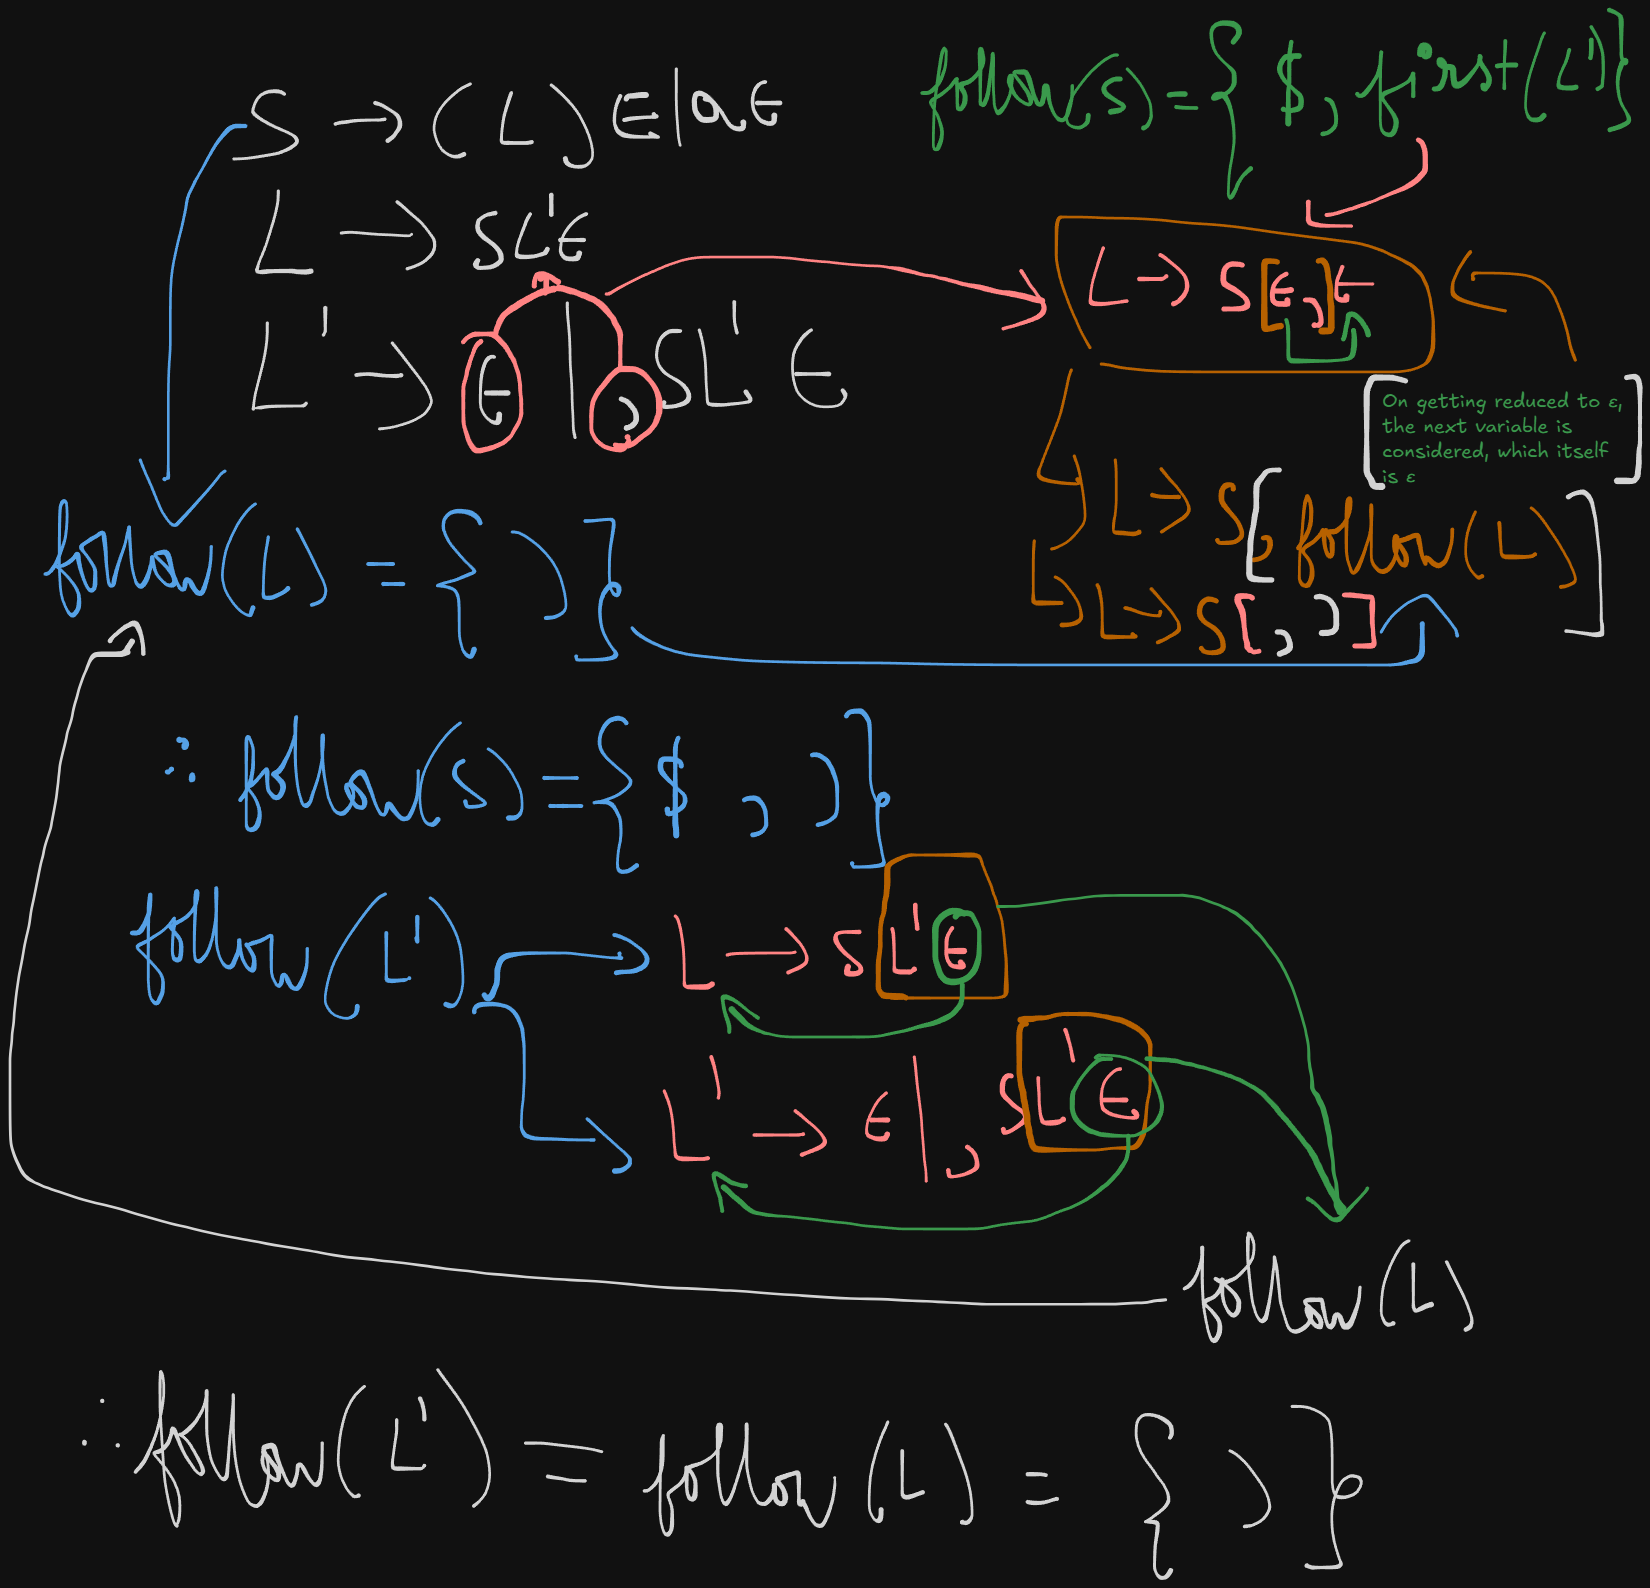 S → (L)ϵ|aϵ
L → SL'ϵ
L' → ϵ | , SL'ϵ
follow(S) = { $, first(L')}
L → S[ϵ,]ϵ
On getting reduced to ε,
the next variable is
considered, which itself
is ε
L → S[, follow(L)]
L → S[, )]
follow(L) = { ) }
∴ follow(S) = { $ , ) }
follow(L')
L → SL'ϵ
L' → ϵ | , SL'ϵ
follow(L)
∴ follow(L') = follow(L) = { ) }